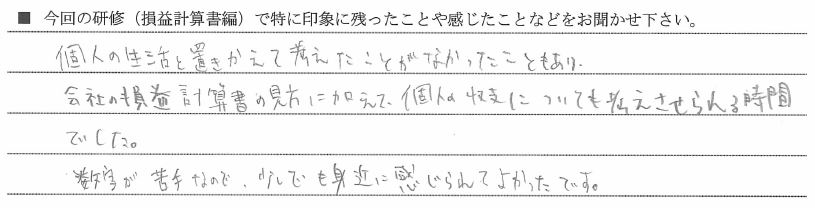 ■ 今回の研修（損益計算書編）で特に印象に残ったことや感じたことなどをお聞かせ下さい。
個人の生活と置きかえて考えたことがなかったこともあり、
会社の損益計算書の見方に加えて、個人の収支についても考えさせられる時間
でした。
数字が苦手なので、少しでも身近に感じられてよかったです。